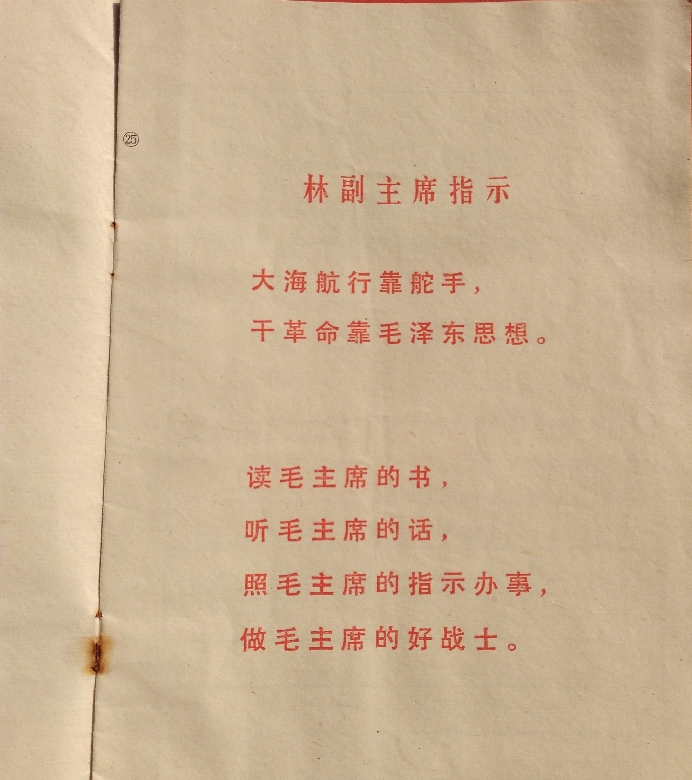 ㉕
林副主席指示
大海航行靠舵手，
干革命靠毛泽东思想。
读毛主席的书，
听毛主席的话，
照毛主席的指示办事，
做毛主席的好战士。